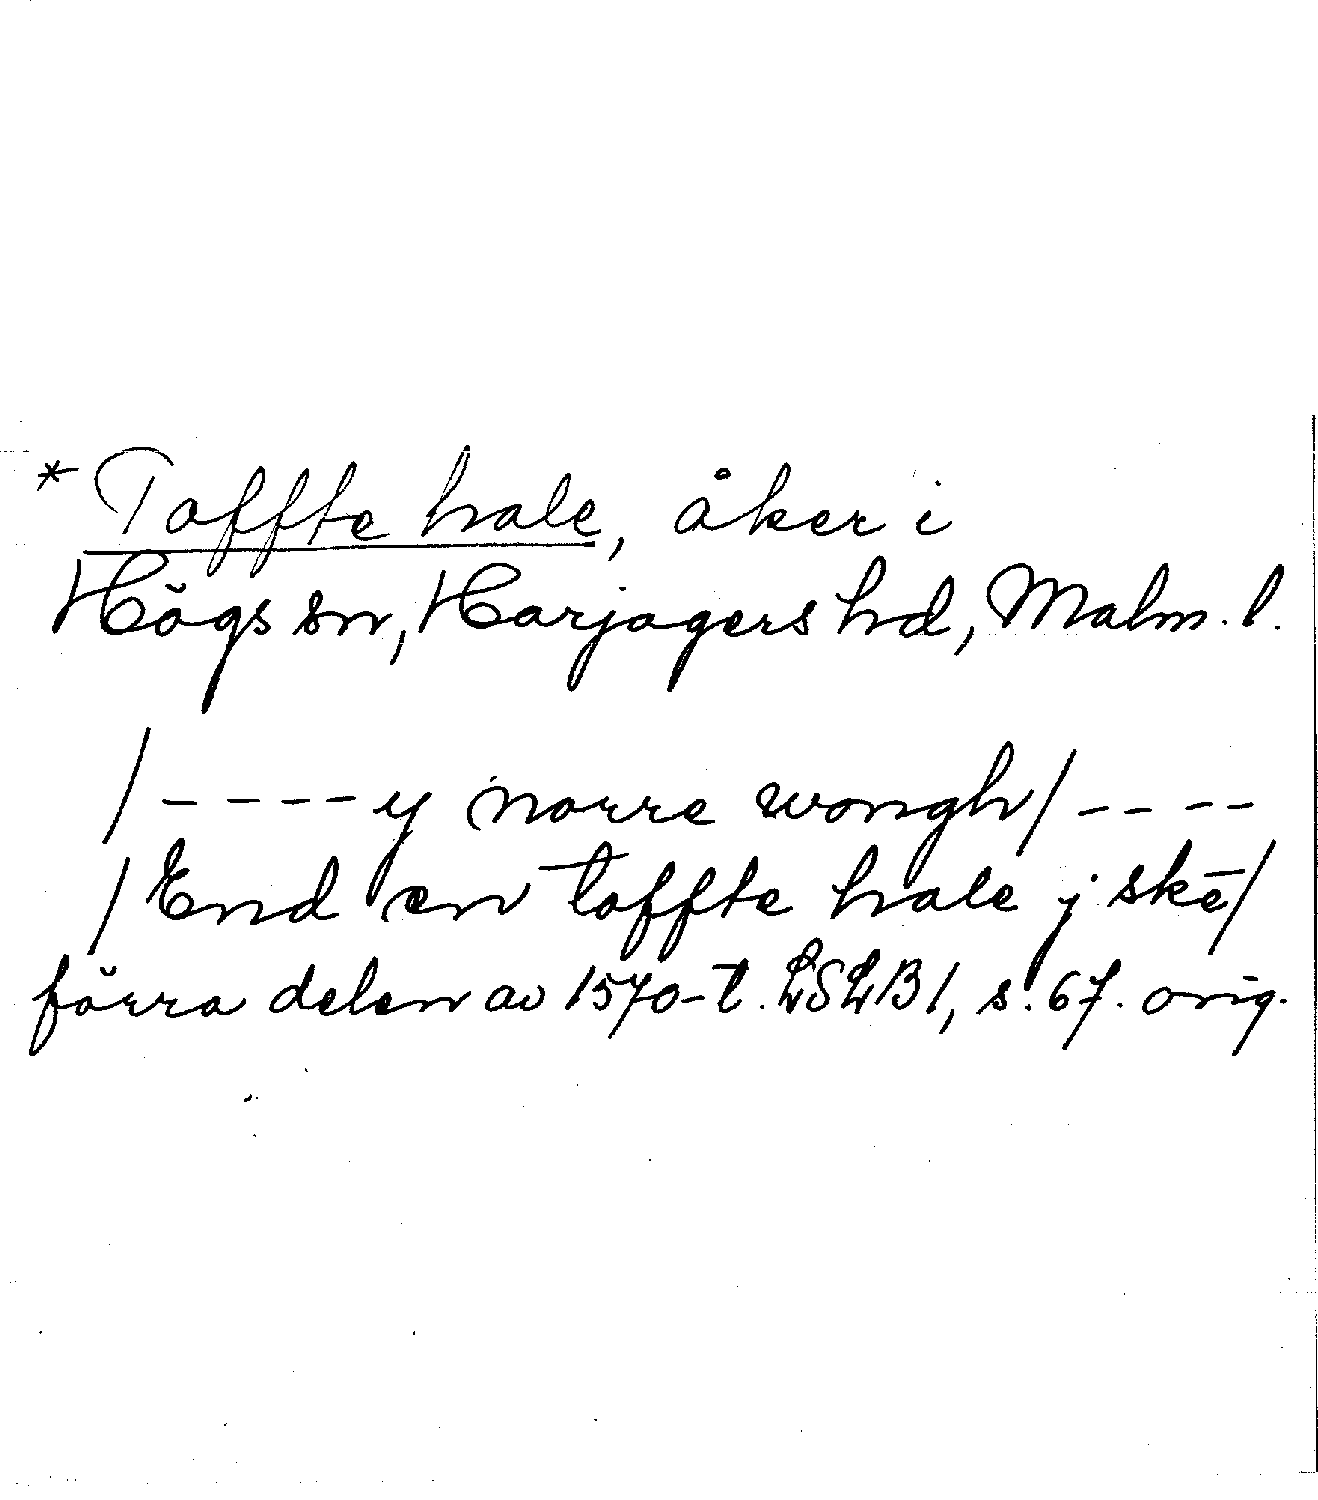 * Toffte hale, åker i
Högs sn, Harjagers hd, Malm. l.
/----y norre wongh/----
/End en toffte hale j skē/
förra delen av 1570-t. LSLB 1, s. 67. orig.